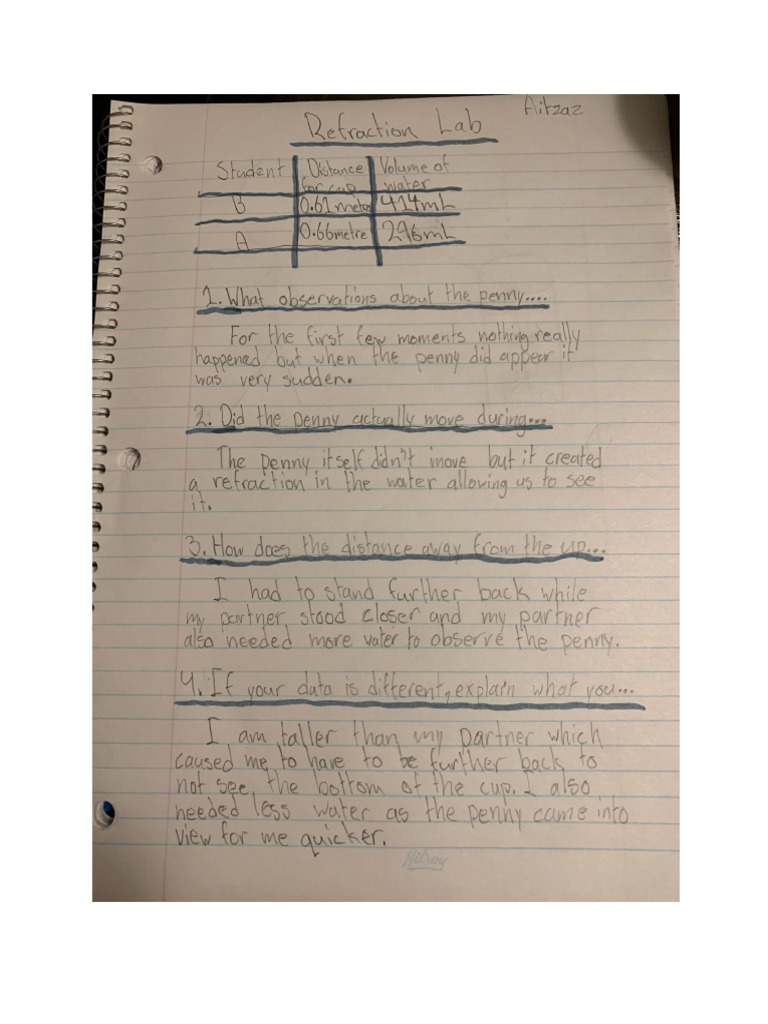 Aitzaz
Refraction Lab
Student Distance Volume of
for cup water
B 0.61 metre 414mL
A 0.66metre 296mL
1. What observations about the penny....
For the first few moments nothing really
happened but when the penny did appear it
was very sudden.
2. Did the penny actually move during...
The penny itself didn't move but it created
a refraction in the water allowing us to see
it.
3. How does the distance away from the up...
I had to stand further back while
my partner stood closer and my partner
also needed more water to observe the penny.
4. If your data is different, explain what you...
I am taller than my partner which
caused me to have to be further back to
not see the bottom of the cup. I also
needed less water as the penny came into
view for me quicker.
Hilroy